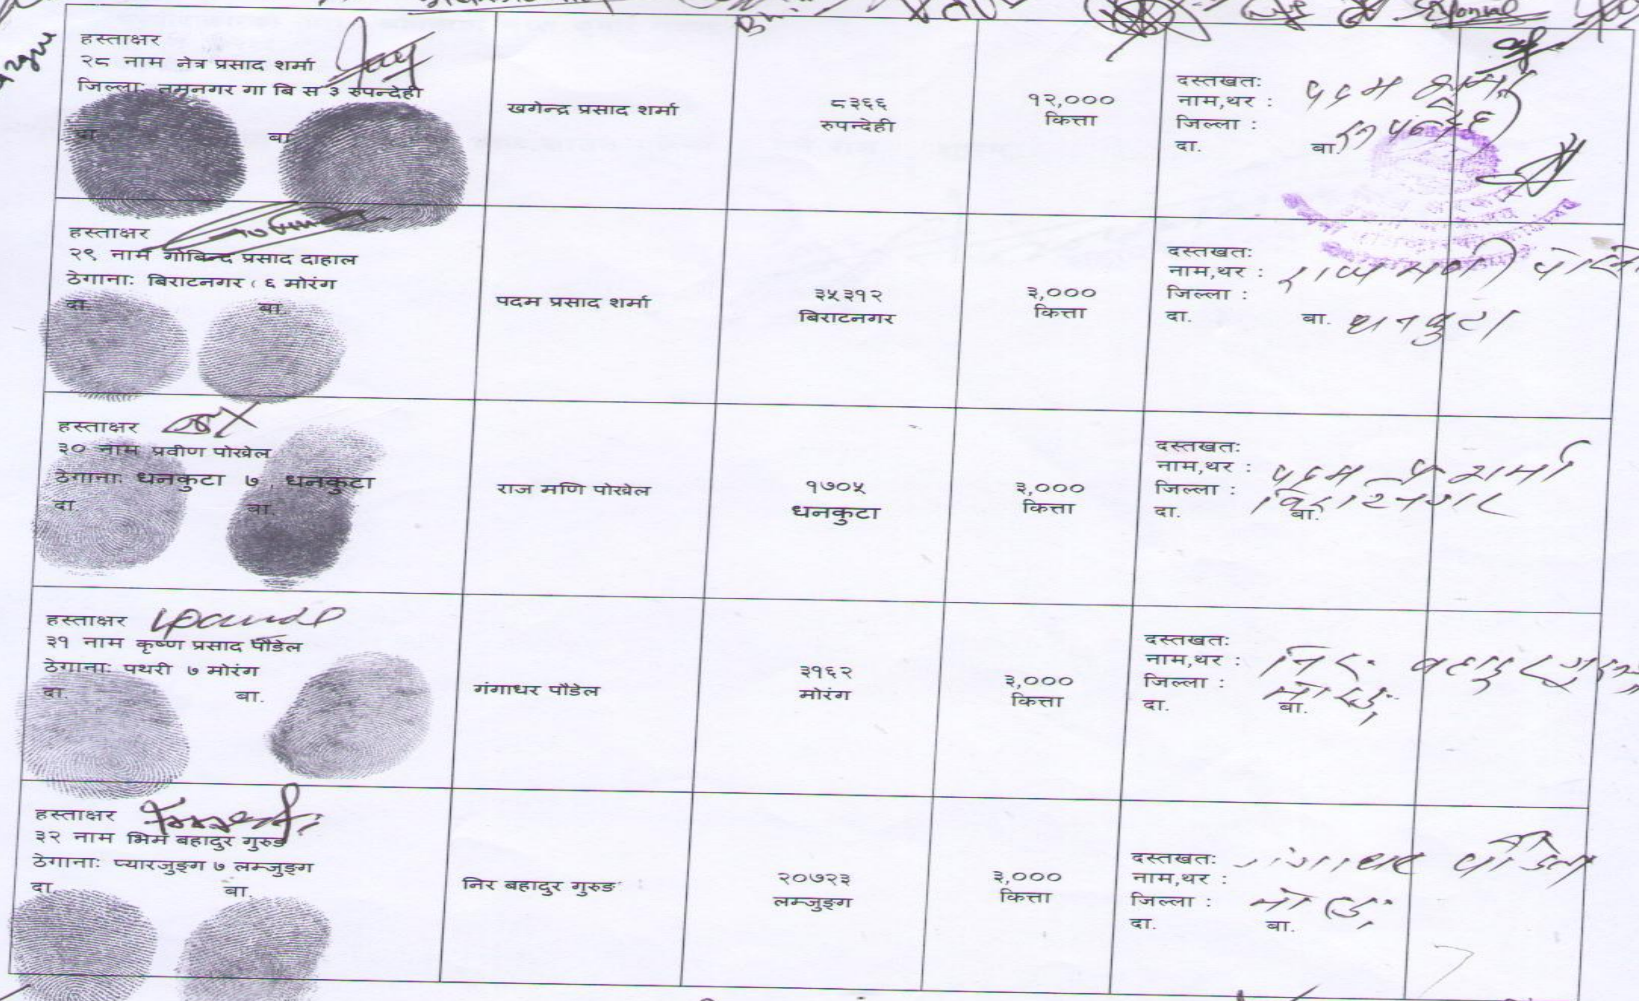 हस्ताक्षर
२८ नाम नेत्र प्रसाद शर्मा
जिल्लाः नमुनगर गा बि स ३ रुपन्देही
दा. बा.
खगेन्द्र प्रसाद शर्मा
८३६६
रुपन्देही
१२,०००
कित्ता
दस्तखतः
नाम,थर : पदम शर्मा
जिल्ला : रुपन्देही
दा. बा.
हस्ताक्षर
२९ नाम गोबिन्द प्रसाद दाहाल
ठेगानाः बिराटनगर ६ मोरंग
दा. बा.
पदम प्रसाद शर्मा
३५३१२
बिराटनगर
३,०००
कित्ता
दस्तखतः
नाम,थर : राज मणी
जिल्ला :
दा. बा. धनकुटा
हस्ताक्षर
३० नाम प्रवीण पोखेल
ठेगानाः धनकुटा ७, धनकुटा
दा. बा.
राज मणि पोखेल
१७०५
धनकुटा
३,०००
कित्ता
दस्तखतः
नाम,थर : पदम प्र शर्मा
जिल्ला : विराटनगर
दा. बा.
हस्ताक्षर
३१ नाम कृष्ण प्रसाद पौडेल
ठेगानाः पथरी ७ मोरंग
दा. बा.
गंगाधर पौडेल
३१६२
मोरंग
३,०००
कित्ता
दस्तखतः
नाम,थर : निर बहादुर गुरुङ
जिल्ला :
दा. बा.
हस्ताक्षर
३२ नाम भिम बहादुर गुरुङ
ठेगानाः प्यारजुङ्ग ७ लम्जुङ्ग
दा. बा.
निर बहादुर गुरुङ
२०७२३
लम्जुङ्ग
३,०००
कित्ता
दस्तखतः गंगाधर पौडेल
नाम,थर :
जिल्ला : मोरङ
दा. बा.